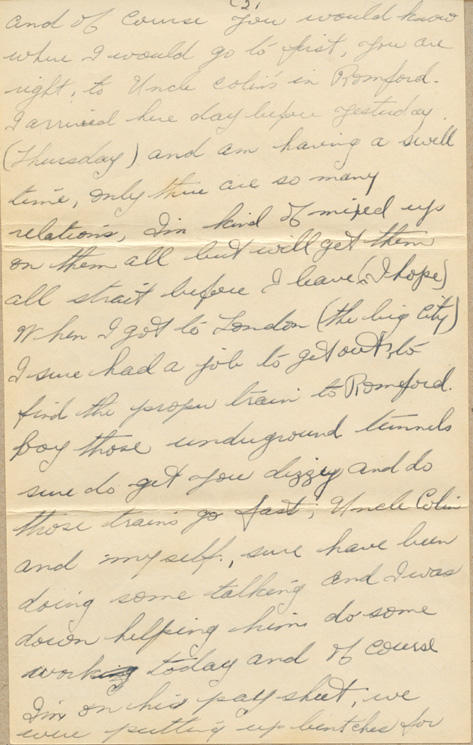 (2)
and of course you would know
where I would go to first, you are
right, to Uncle Colin's in Romford.
I arrived here day before yesterday
(Thursday) and am having a swell
time, only there are so many
relations, I'm kind of mixed up
on them all but will get them
all strait before I leave (I hope)
When I got to London (the big city)
I sure had a job to get out, to
find the proper train to Romford.
Boy those underground tunnels
sure do get you dizzy and do
those trains go fast, Uncle Colin
and myself, sure have been
doing some talking and I was
down helping him do some
work today and of course
I'm on his pay sheet, we
were putting up bentches for